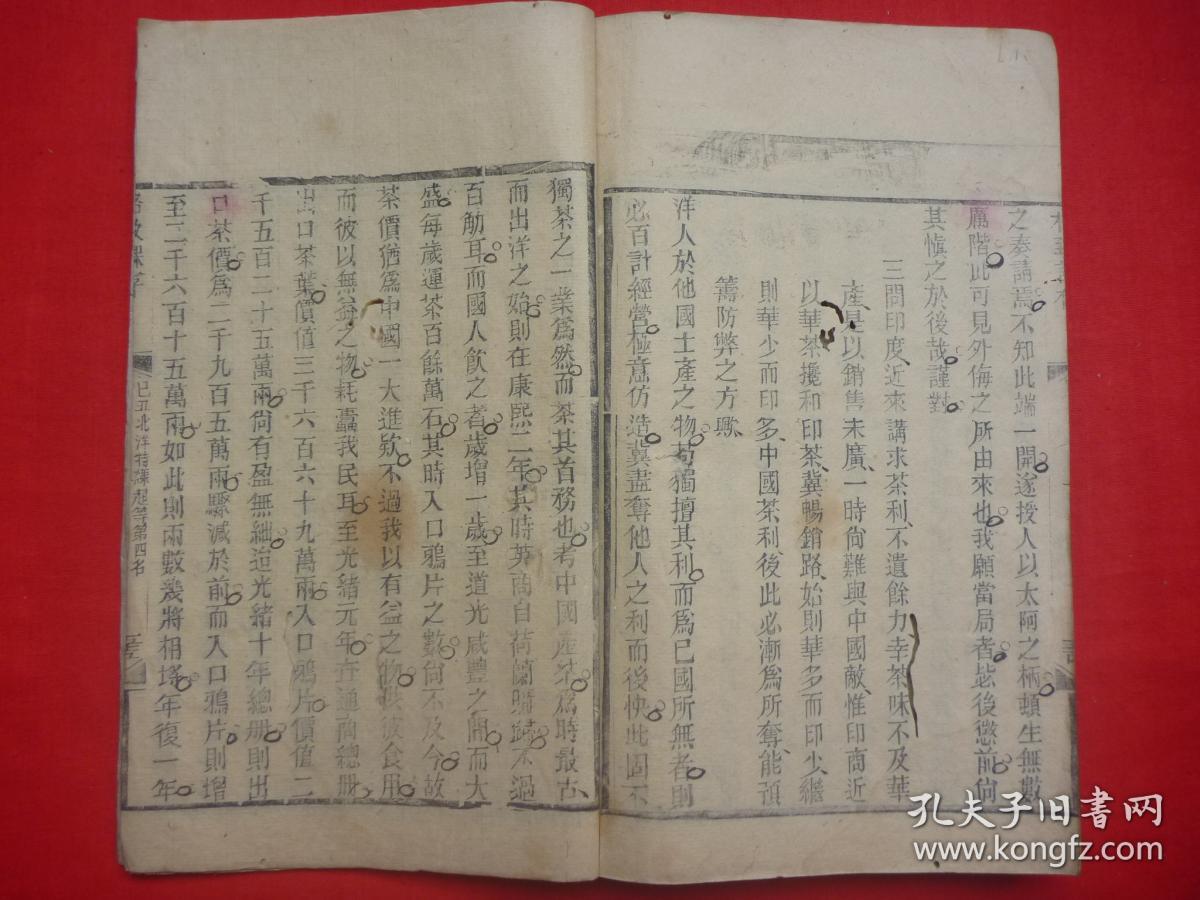 之奏請焉不知此端一開遂授人以太阿之柄頓生無數
厲階此可見外侮之所由來也我願當局者毖後懲前尙
其愼之於後哉謹對
三問印度近來講求茶利不遺餘力幸茶味不及華
產是以銷售未廣一時尙難與中國敵惟印商近
以華茶攙和印茶冀暢銷路始則華多而印少繼
則華少而印多中國茶利後此必漸爲所奪能預
籌防弊之方歟
洋人於他國土產之物苟獨擅其利而爲已國所無者則
必百計經營極意仿造冀盡奪他人之利而後快此固不
獨茶之一業爲然而茶其首務也考中國產茶爲時最古
而出洋之始則在康熙二年其時英商自荷蘭購歸不過
百觔耳而國人飲之者歲增一歲至道光咸豐之間而大
盛每歲運茶百餘萬石其時入口鴉片之數尙不及今故
茶價猶爲中國一大進欵不過我以有益之物供彼食用
而彼以無益之物耗蠹我民耳至光緖元年查通商總冊
出口茶葉價值三千六百六十九萬兩入口鴉片價值二
千五百二十五萬兩尙有盈無絀迨光緖十年總冊則出
口茶價爲二千九百五萬兩驟減於前而入口鴉片則增
至二千六百十五萬兩如此則兩數幾將相埓年復一年
格致課存
已丑北洋特課超等第四名
孔夫子旧书网
www.kongfz.com